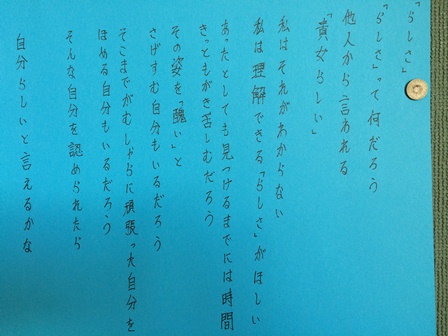 「らしさ」
「らしさ」って何だろう
他人から言われる
「貴女らしい」
私はそれがわからない
私は理解できる「らしさ」がほしい
あったとしても見つけるまでには時間
きっともがき苦しむだろう
その姿を「醜い」と
さげすむ自分もいるだろう
そこまでがむしゃらに頑張った自分を
ほめる自分もいるだろう
そんな自分を認められたら
自分らしいと言えるかな